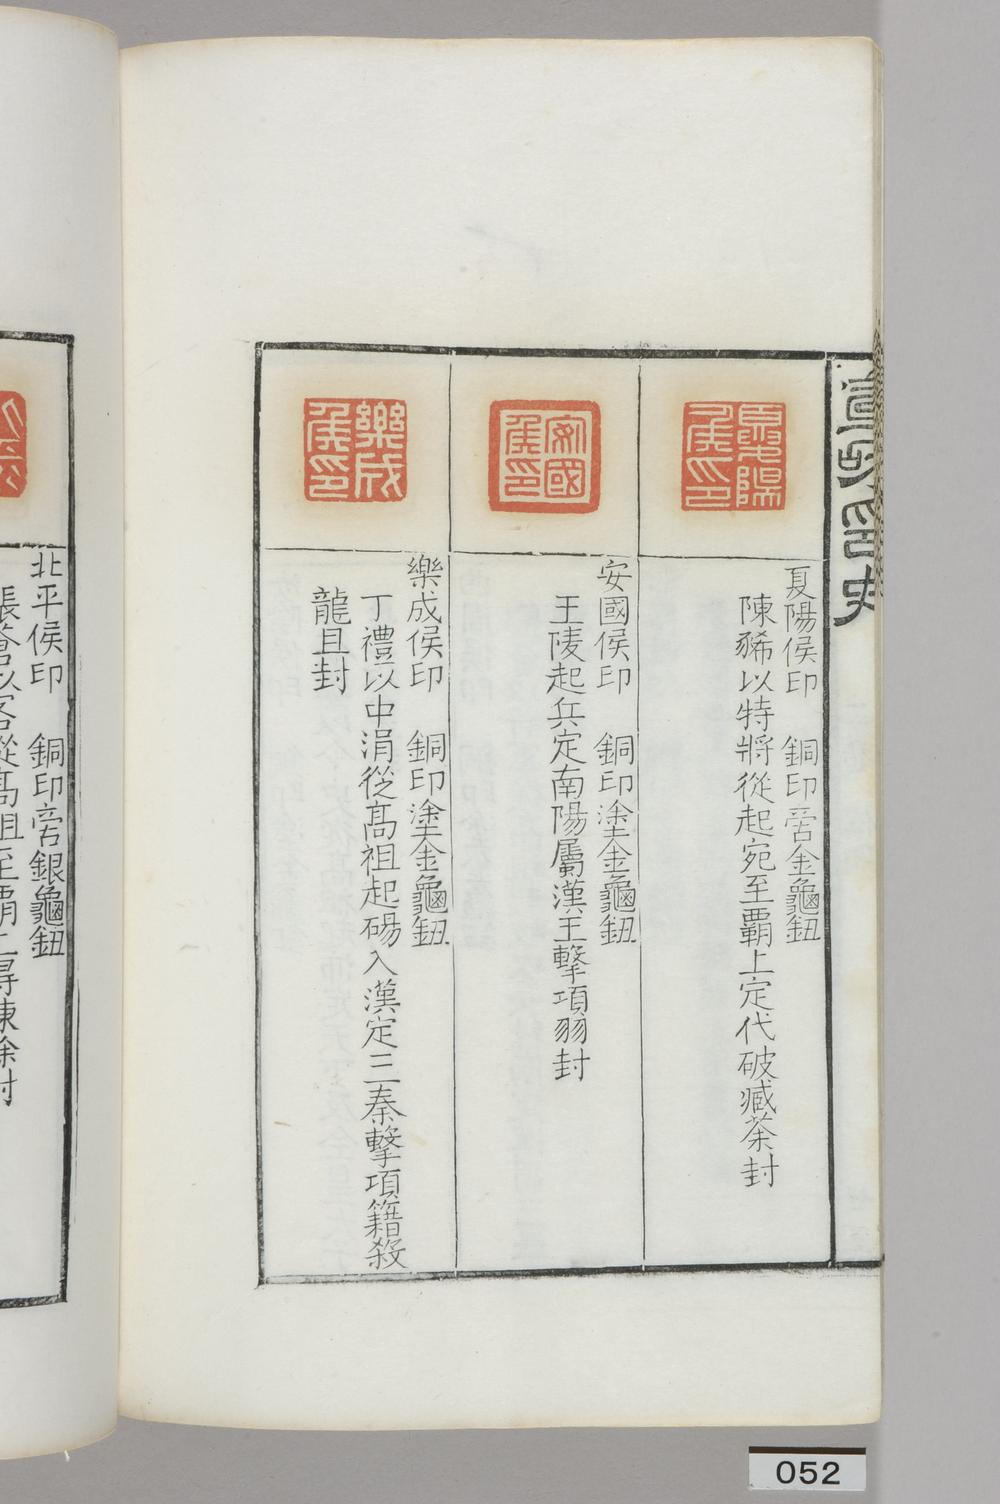 宣和印史
夏陽侯印
夏陽侯印　銅印窅金龜鈕
陳豨以特將從起宛至覇上定代破臧荼封
安國侯印
安國侯印　銅印塗金龜鈕
王陵起兵定南陽屬漢王擊項羽封
樂成侯印
樂成侯印　銅印塗金龜鈕
丁禮以中涓從高祖起碭入漢定三秦擊項籍殺
龍且封
北平侯印　銅印窅銀龜鈕
張蒼以客從高祖至覇上得陳餘封
052